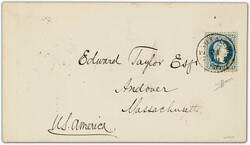 Edward Taylor Esqr
Andover
Massachusetts
U.S. America